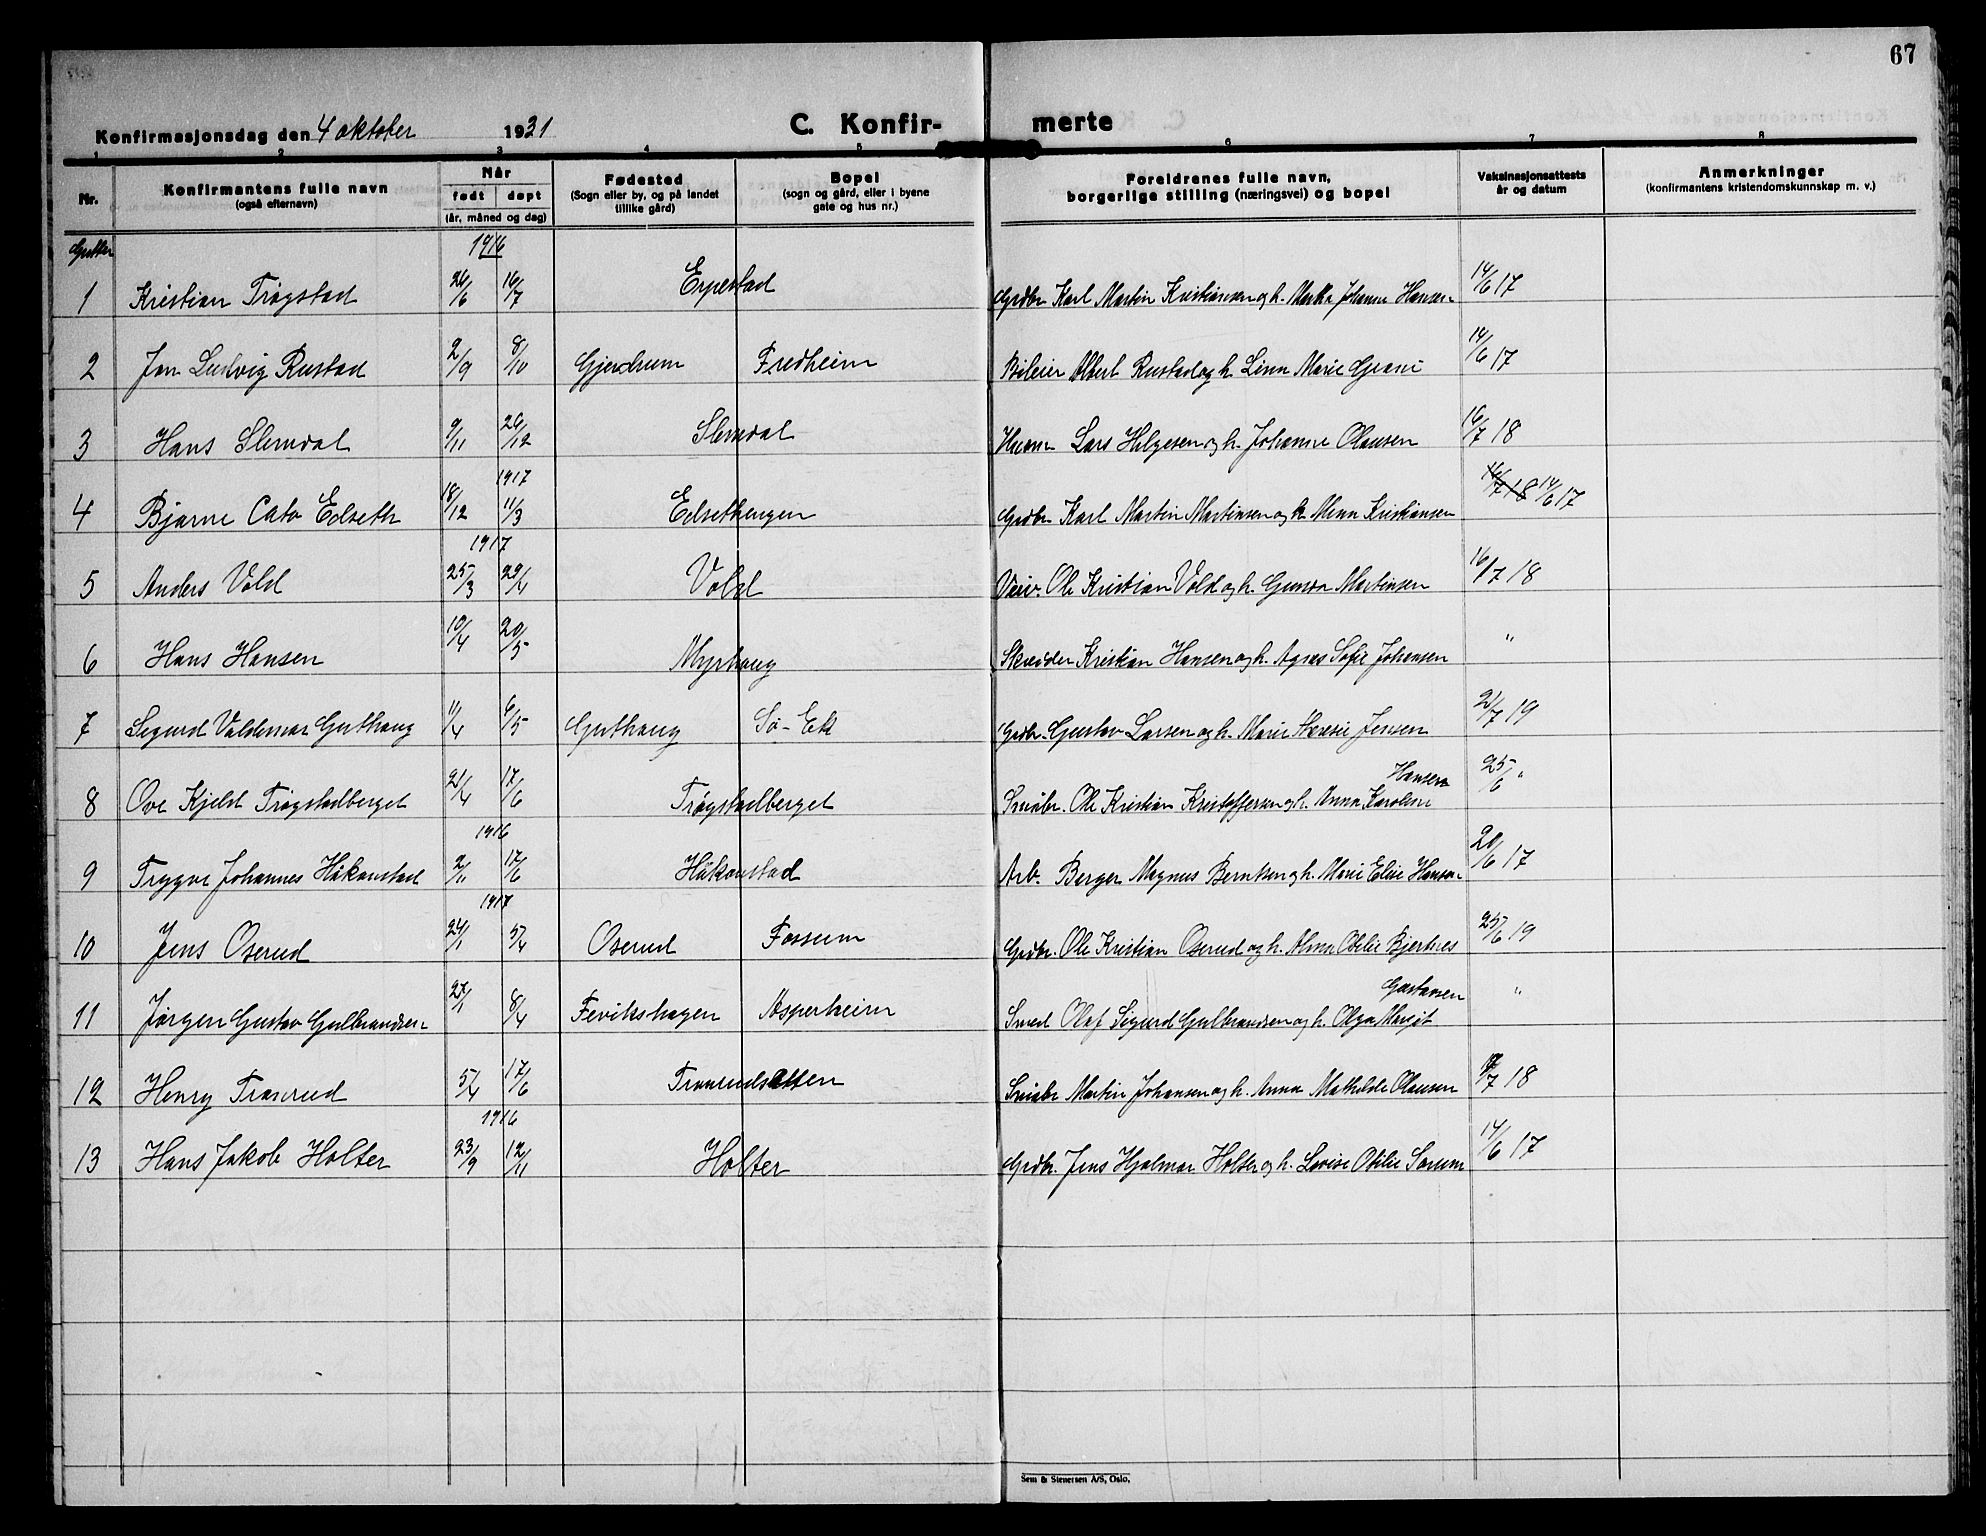 67
Konfirmasjonsdag den 4 oktober 1931 C. Konfir- merte
1 2 3 4 5 6 7 8
Nr. Konfirmantens fulle navn (også efternavn) Når født døpt (år, måned og dag) Fødested (Sogn eller by, og på landet tillike gård) Bopel (sogn og gård, eller i byene gate og hus nr.) Foreldrenes fulle navn, borgerlige stilling (næringsvei) og bopel Vaksinasjonsattests år og datum Anmerkninger (konfirmantens kristendomskunnskap m. v.)
Gutter 1916
1 Kristian Trøgstad 26/6 16/7 Erpestad Grdbr. Karl Martin Kristiansen og h. Marka Johanne Hansen 14/6 17
2 Jon Ludvig Rustad 2/9 8/10 Gjerdrum Fredheim Bileier Albert Rustad og h. Linn Marie Grani 14/6 17
3 Hans Slemdal 9/11 26/12 Slemdal Lars Helgesen og h. Johanne Olausen 16/7 18
1917
4 Bjarne Cato Edseth 18/12 11/3 Edsethengen Grdbr. Karl Martin Martinsen og h. Minn Kristiansen 16/7 18 14/6 17
1917
5 Anders Vold 25/3 22/4 Vold Veiv. Ole Kristian Vold og h. Gunda Martinsen 16/7 18
6 Hans Hansen 10/4 20/5 Myrhaug Skredder Kristian Hansen og h. Agnes Sofie Johansen "
7 Sigurd Valdemar Guthaug 11/4 6/5 Guthaug Sø-Ek Grdbr. Gustav Larsen og h. Marie Theresie Jensen 2/7 19
Hansen
8 Ove Kjeld Trøgstadberget 21/4 17/6 Trøgstadberget Småbr. Ole Kristian Kristoffersen og h. Anna Karoline 25/6 "
1916
9 Trygve Johannes Håkonstad 2/11 17/6 Håkonstad Arb. Berger Magnus Berntsen og h. Marie Elise Hansen 20/6 17
1917
10 Jens Oserud 24/1 5/4 Oserud Fossum Grdbr. Ole Kristian Oserud og h. Alma Otilie Bjertnes 25/6 19
Gustavsen
11 Jørgen Gustav Gulbrandsen 27/1 8/4 Fevikshagen Asperheim Smed Olaf Sigurd Gulbrandsen og h. Olga Margit "
12 Henry Tranrud 5/4 17/6 Småbr. Martin Johansen og h. Anna Mathilde Olausen 7 18
1916
13 Hans Jakob Holter 23/9 12/11 Holter Grdbr. Jens Hjalmar Holter og h. Lovise Otilie Sørum 14/6 17
Sem & Stenersen A/S, Oslo.